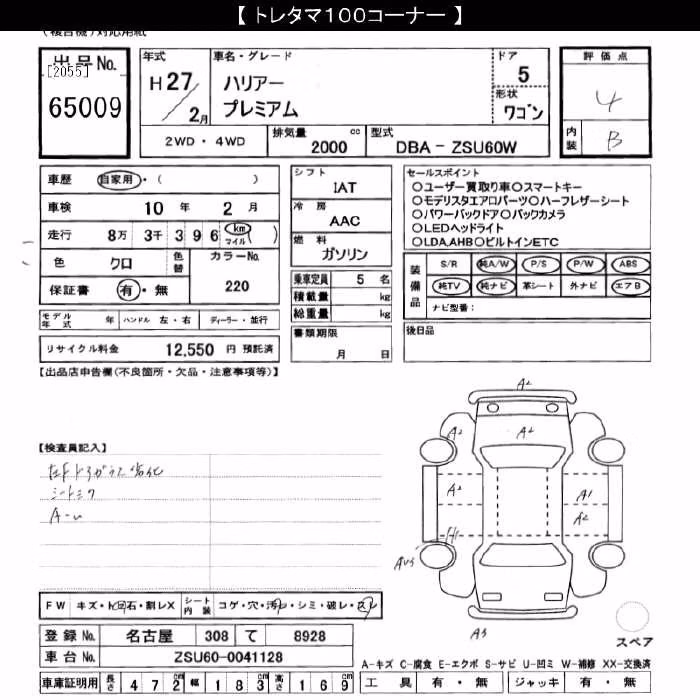 【 トレタマ100コーナー 】
(複合機)対応用紙
出品No.
[2055]
65009
年式
H27/2月
車名・グレード
ハリアー
プレミアム
ドア
5
形状
ワゴン
評価点
4
内装
B
2WD・4WD
排気量
2000 cc
型式
DBA－ZSU60W
車歴 自家用・( )
車検 10年 2月
走行 8万 3千 3 9 6 ( km マイル )
色 クロ 色替 カラーNo.
保証書 有・無 220
モデル年式 年 ハンドル 左・右 ディーラー・並行
リサイクル料金 12,550 円 預託済
シフト
IAT
冷房
AAC
燃料
ガソリン
乗車定員 5 名
積載量 kg
総重量 kg
書類期限
月 日
セールスポイント
○ユーザー買取り車○スマートキー
○モデリスタエアロパーツ○ハーフレザーシート
○パワーバックドア○バックカメラ
○LEDヘッドライト
○LDA,AHB○ビルトインETC
装備品
S/R 純A/W P/S P/W ABS
純TV 純ナビ 革シート 外ナビ エアB
ナビ型番：
後日品
【出品店申告欄(不良箇所・欠品・注意事項等)】
【検査員記入】
A2
A2 A2
A2 A1
A2
A3
FW キズ・トビ石・割レX シート内装 コゲ・穴・汚レ・シミ・破レ・スレ
登録No. 名古屋 308 て 8928
車台No. ZSU60-0041128
車庫証明用 長さ 4 7 2cm 幅 1 8 3cm 高さ 1 6 9cm
スペア
A-キズ C-腐食 E-エクボ S-サビ U-凹ミ W-補修 XX-交換済
工具 有・無 ジャッキ 有・無